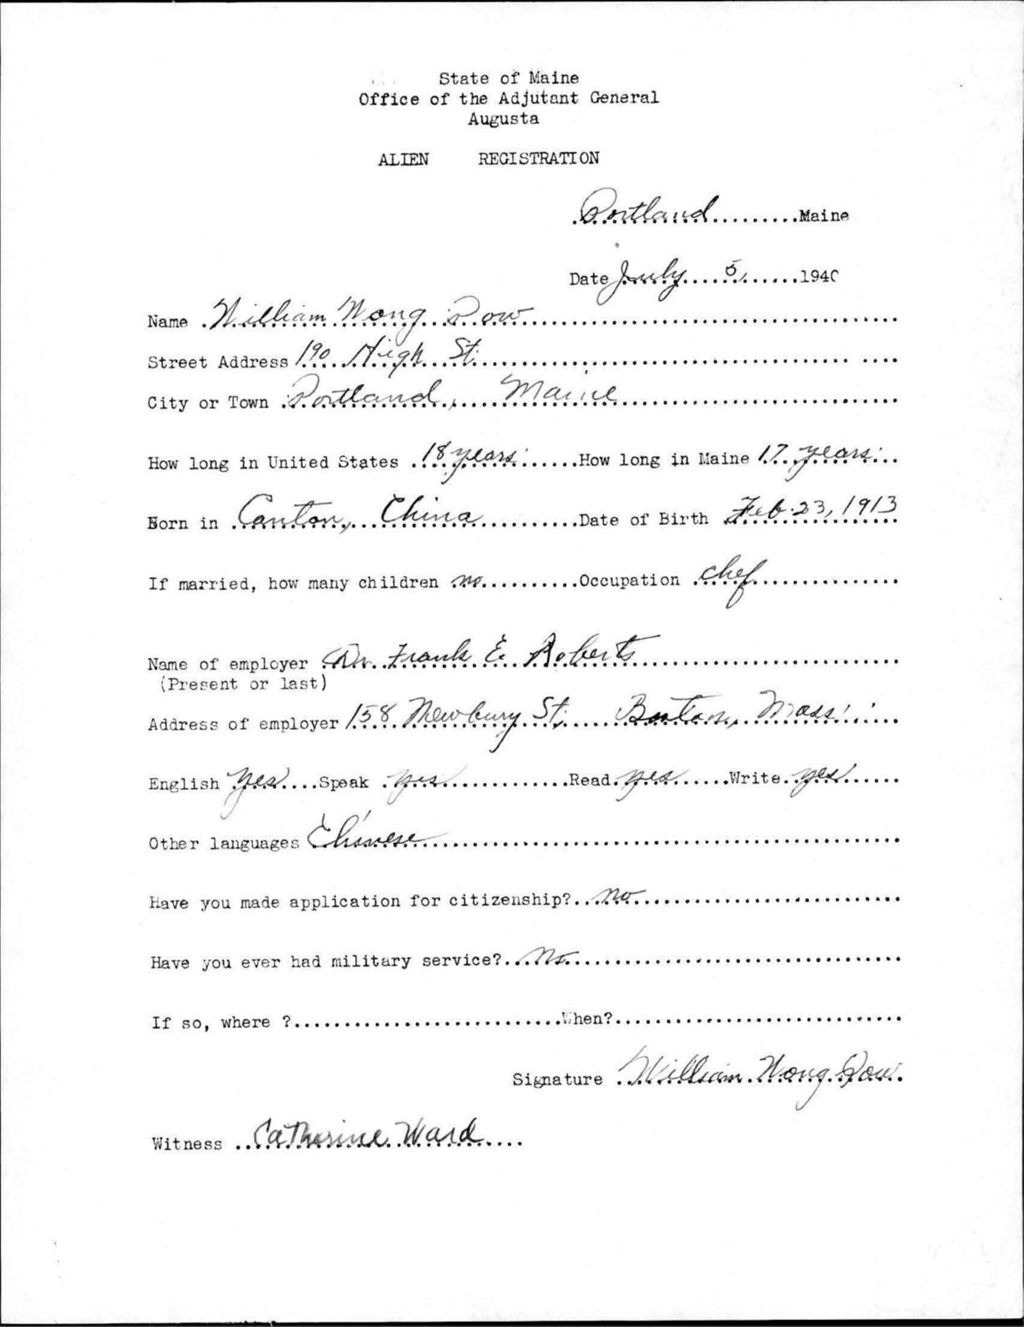 State of Maine
Office of the Adjutant General
Augusta
ALIEN REGISTRATION
Portland Maine
Date July 5, 1940
Name William Wong Dow
Street Address 190 High St.
City or Town Portland, Maine
How long in United States 18 years How long in Maine 17 years
Born in Canton, China Date of Birth Feb. 23, 1913
If married, how many children no Occupation chef
Name of employer Dr. Frank E. Roberts
(Present or last)
Address of employer 158 Newbury St. Boston, Mass.
English Yes Speak yes Read yes Write yes
Other languages Chinese
Have you made application for citizenship? no
Have you ever had military service? No
If so, where ? When?
Signature William Wong Dow
Witness Catherine Ward